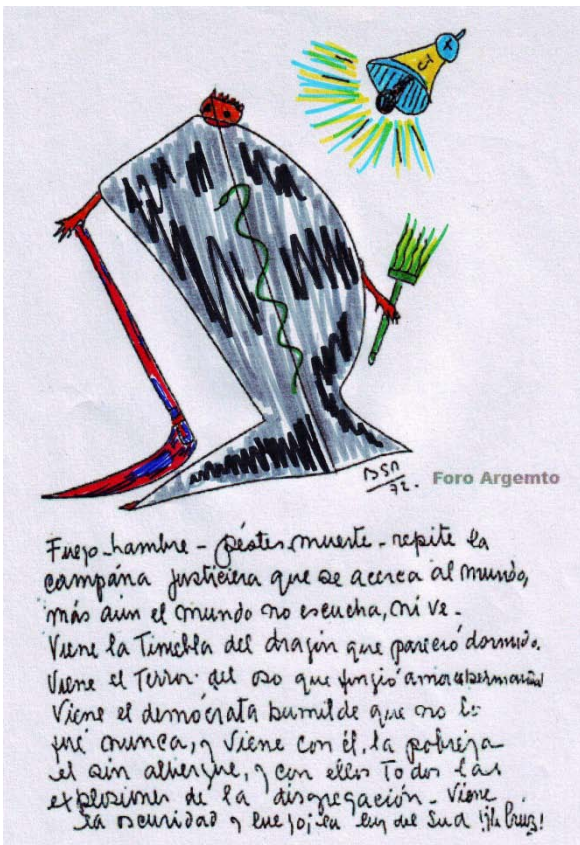 CT
BSP
72.
Foro Argemto
Fuego - hambre - péstes, muerte - repite la
campána justiciera que se acerca al mundo,
más aun el mundo no escucha, ni ve -
Viene la Tiniebla del dragón que pareció dormido.
Viene el Terror del oso que fingió amor
Viene el demócrata humilde que no lo
fué nunca, y Viene con él, la pobreza
el sin albergue, y con ellos Todos las
explosiones de la disgregación - Viene
la oscuridad y luz del Sud